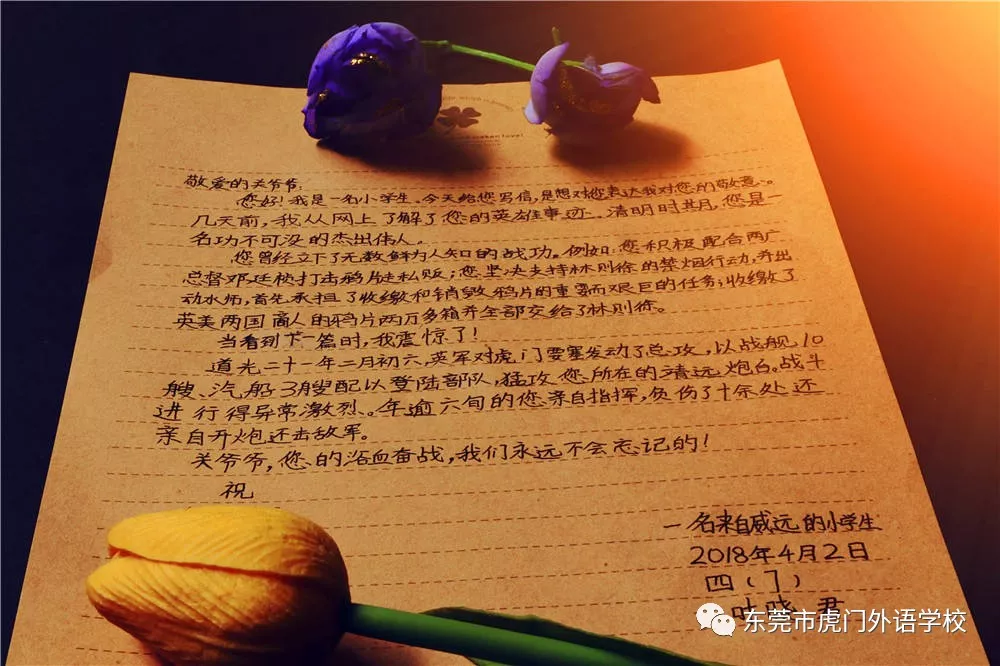 敬爱的关爷爷:
您好!我是一名小学生。今天给您写信,是想对您表达我对您的敬意。
几天前,我从网上了解了您的英雄事迹。清明时其月,您是一
名功不可没的杰出伟人。
您曾经立下了无数鲜为人知的战功。例如:您积极配合两广
总督邓廷桢打击鸦片走私贩;您坚决支持林则徐的禁烟行动,并出
动水师,首先承担了收缴和销毁鸦片的重要而艰巨的任务;收缴了
英美两国商人的鸦片两万多箱并全部交给了林则徐。
当看到下一篇时,我震惊了!
道光二十一年二月初六,英军对虎门要塞发动了总攻,以战舰10
艘、汽船3艘配以登陆部队,猛攻您所在的靖远炮台。战斗
进行得异常激烈。年逾六旬的您亲自指挥,负伤了十余处还
亲自开炮还击敌军。
关爷爷,您的浴血奋战,我们永远不会忘记的!
祝
一名来自威远的小学生
2018年4月2日
四(7)
叶晓君
东莞市虎门外语学校